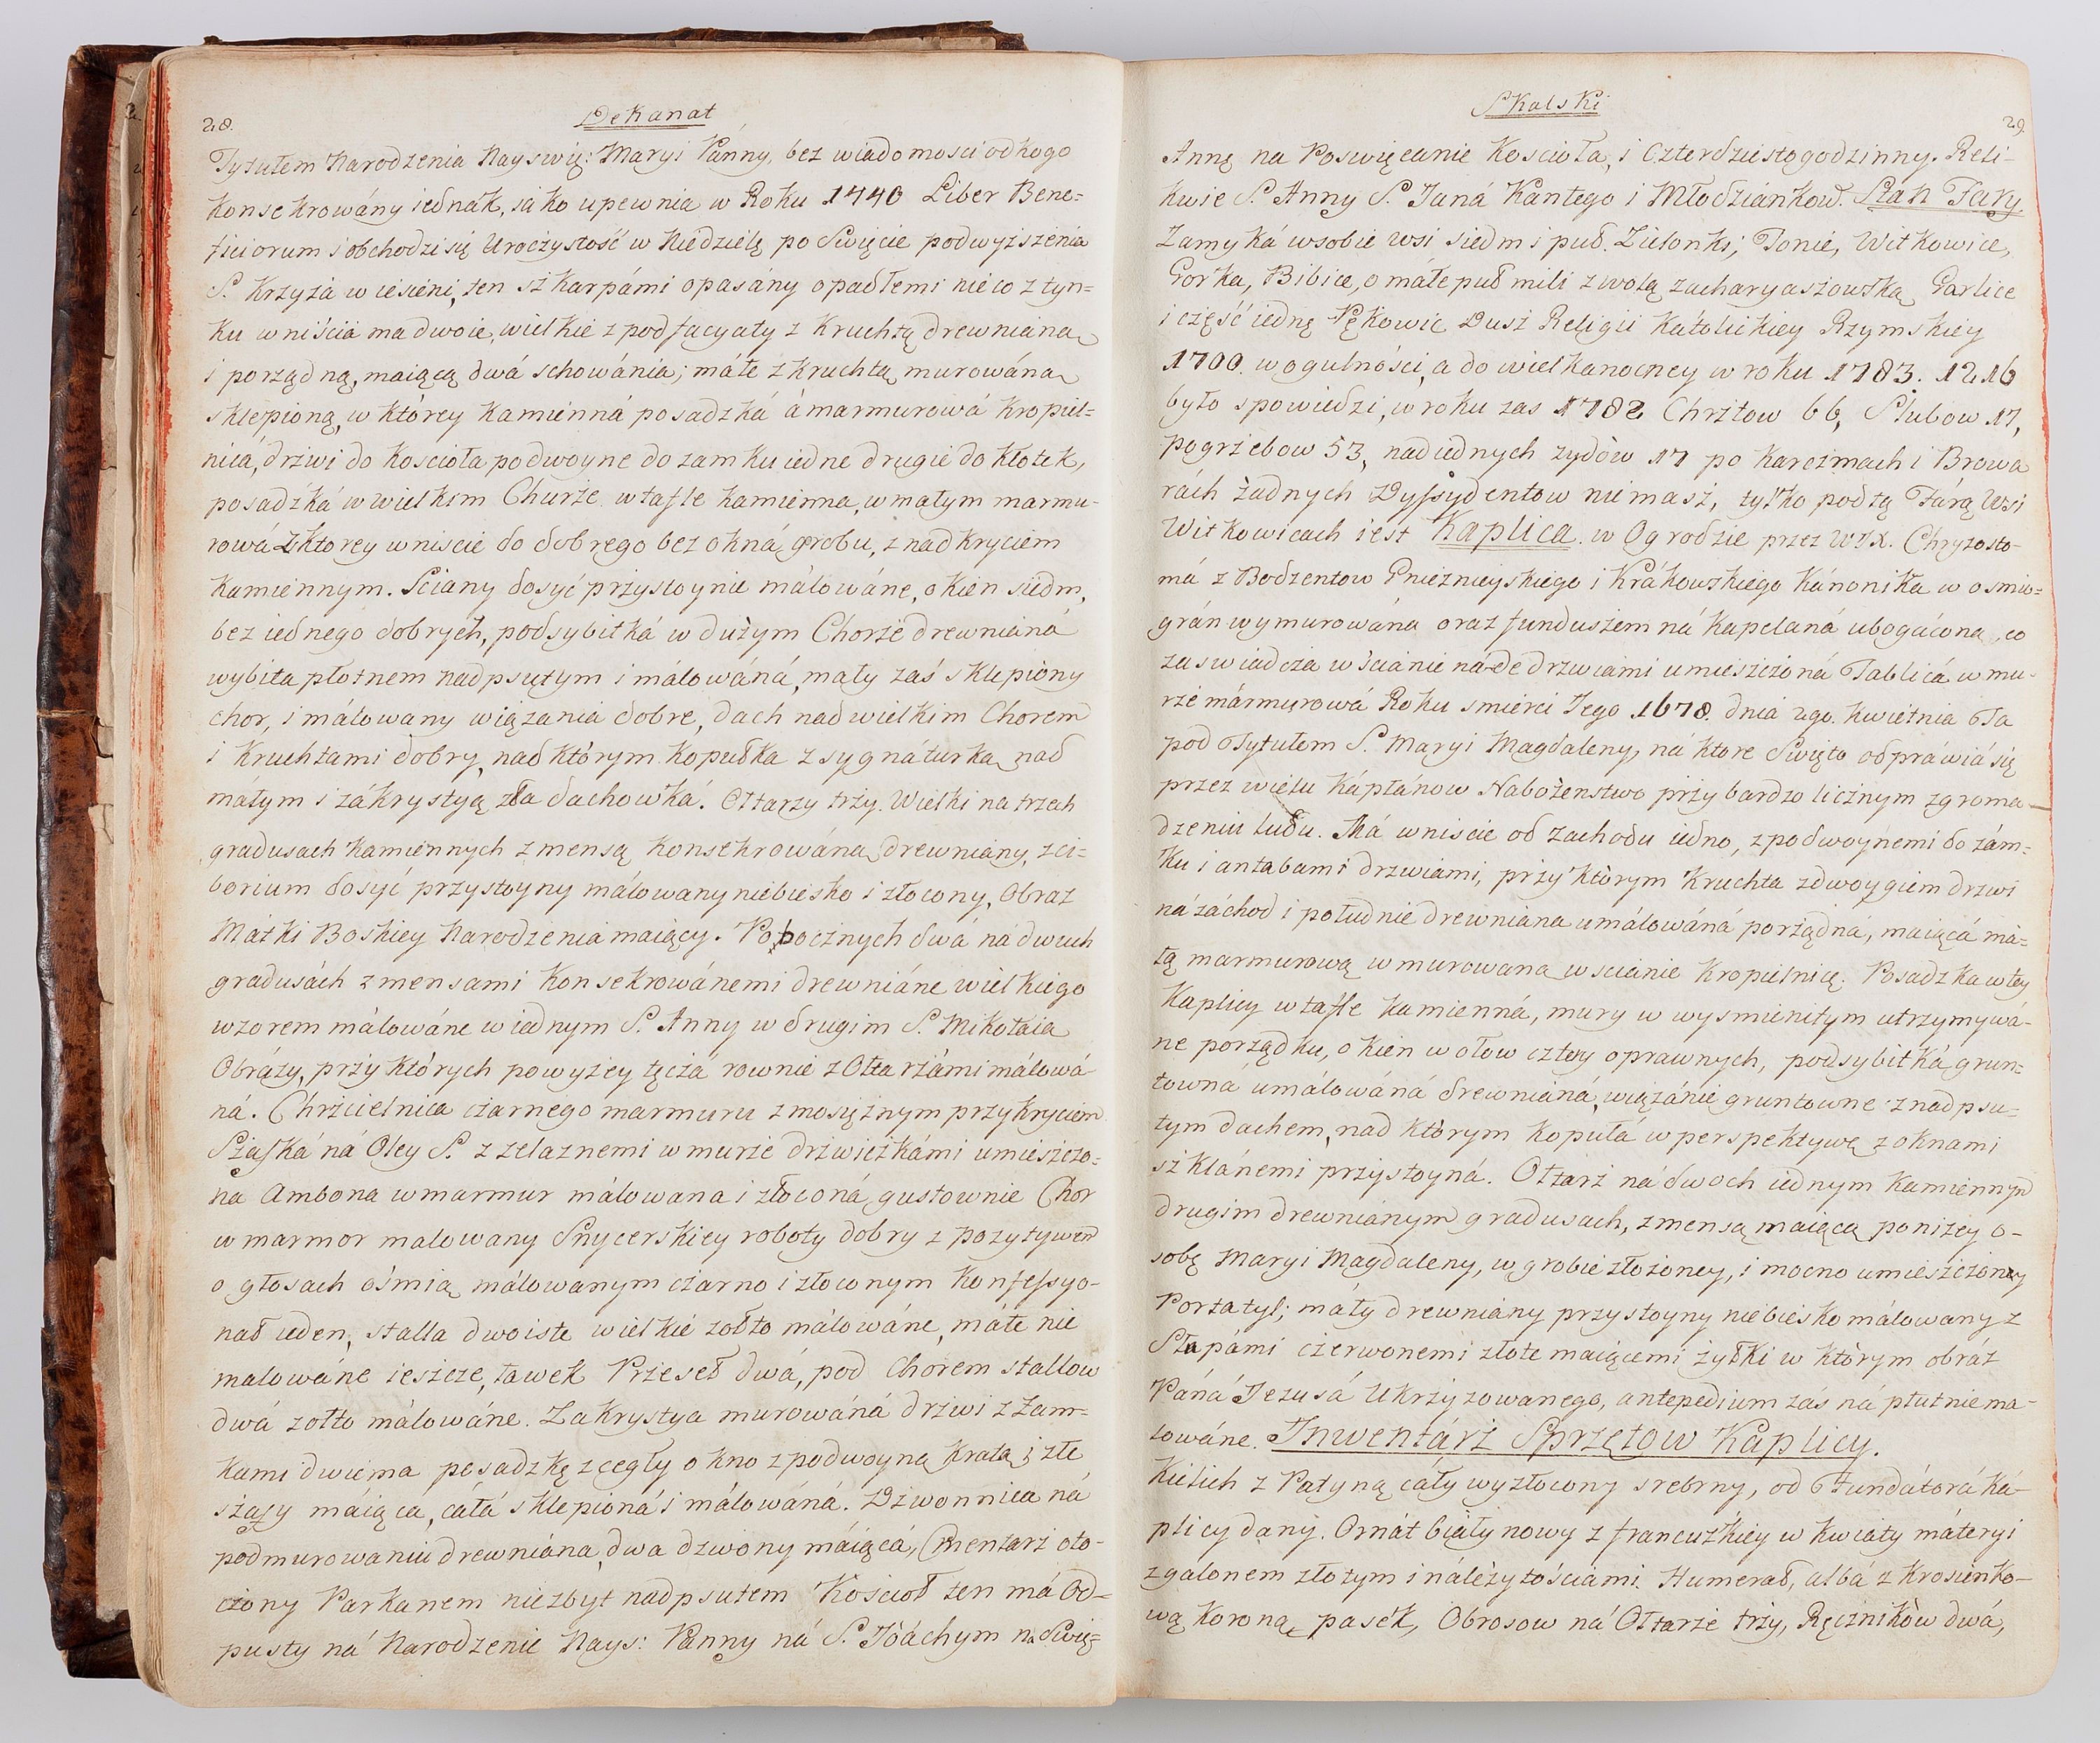 28.
Dekanat
Tytułem Narodzenia Nayswię: Maryi Panny, bez wiadomosci od kogo
konsekrowány iednak, iako upewnia w Roku 1440 Liber Bene=
ficiorum i obchodzi się Uroczystość w Niedzielę po Swięcie podwyższenia
S. Krzyża w iesieni, ten szkarpámi opasány opadłemi nieco z tyn=
ku wniścia ma dwoie, wielkie z pod facyaty z Kruchtą drewniana
i porządną, maiącą dwá schowánia; máłe z kruchtą murowána
sklepioną, w którey kamienná posadzká á marmurowá kropiel=
nica, drzwi do koscioła podwoyne do zamku iedne drugie do kłotek,
posadzká w wielkim Churze w tafle kamienna, w małym marmu-
rowá z ktorey wniscie do dobrego bez okná grobu, z nadkryciem
kamiennym. Sciany dosyć przystoynie málowáne, okien siedm,
bez iednego dobrych, podsybitká w dużym Chorze drewniána
wybita płotnem nadpsutym i málowáná, mały zaś sklepiony
chor, i málowany wiązania dobre, dach nad wielkim Chorem
i Kruchtami dobry, nad ktòrym kopułka z sygnáturka, nad
máłym i zákrystyą zła dachowká. Ołtarzy trzy. Wielki na trzech
gradusach kamiennych z mensą konsekrowána drewniány, z ci-
borium dosyć przystoyny málowany niebiesko i złocony, Obraz
Matki Boskiey Narodzenia maiący. Pobocznych dwá ná dwuch
gradusách z mensami konsekrowánemi drewniáne wielkiego
wzorem málowáne w iednym S. Anny w drugim S. Mikołaia
Obrázy, przy których powyżey tęczá rownie z Ołtarzámi málowá-
ná. Chrzcielnica czarnego marmuru z mosiężnym przykryciem
Szafká ná Oley S. z zelaznemi w murze drzwiczkámi umieszczo=
na Ambona w marmur málowana i złoconá gustownie Chor
w marmor malowany Snycerskiey roboty dobry z pozytywem
o głosach ośmią málowanym czarno i złoconym Konfessyo-
nał ieden, stalla dwoiste wielkie zołto málowáne, máłe nie
malowáne ieszcze, ławek Przeseł dwá, pod Chorem stallow
dwá zołto málowáne. Zakrystya murowáná drzwi z zam=
kami dwiema posadzkę z cegły okno z podwoyną kratą i złe
szafy máiąca, cáłá sklepioná i málowáná. Dzwonnica ná
podmurowaniu drewniána dwa dzwony máiącá, Cmentarz oto-
czony Parkanem niezbyt nadpsutem Kościoł ten má Od-
pusty ná Narodzenie Nays: Panny ná S. Joáchym na Swię=
Skalski
29
Annę na Poswięcanie Kosciołá, i Czterdziestogodzinny. Reli-
kwie S. Anny S. Janá Kantego i Młodziánkow. Stan Fary
Zamyká w sobie wsi siedm i puł. Zielonki, Tonie, Witkowice,
Gorka, Bibice, o máłe puł mili z wolą zacharyaszowską Garlice
i część iednę Pękowic Dusz Religii Kátolickiey Rzymskiey
1700. w ogulności, a do wielkanocney w roku 1783. 1216
było spowiedzi, w roku zas 1782 Chrztow 66, Slubow 17,
pogrzebow 53, nadiednych zydòw 17 po karczmach i Browa
rách żadnych Dyssydentow nie masz, tylko pod tą Fárą wsi
Witkowicach iest Kaplica w Ogrodzie przez WJX. Chryzosto-
má z Bodzentow Gnieznieyskiego i Krákowskiego Kánonika w osmio=
grán wymurowána oraz funduszem ná kapelaná ubogácona, co
zaswiadcza w ścianie náde drzwiami umieszczoná Tablicá w mu-
rze mármurowá Roku smierci Jego 1678. dnia 2go. kwietnia Ta
pod Tytułem S. Maryi Magdaleny, ná ktore Swięto odpráwiá się
przez wielu Kápłánow Nabożenstwo przy bardzo licznym zgroma-
dzeniu ludu. Má wniscie od zachodu iedno, z podwoynemi do zám=
ku i antabami drzwiami, przy ktòrym kruchta z dwoygiem drzwi
ná záchod i południe drewniana umálowáná porządná, maiącá má=
łą marmurową wmurowana w scianie Kropielnicę. Posadzka w tey
Kaplicy w tafle kamienná, mury w wysmienitym utrzymywá-
ne porządku, okien w ołow cztery oprawnych, podsybitká grun=
towná umálowáná drewniáná, wiązánie gruntowne z nadpsu=
tym dachem, nad ktòrym kopułá w perspektywę z oknami
szklánemi przystoyná. Ołtarz ná dwoch iednym kamiennym
drugim drewnianym gradusach, z mensą maiącą poniżey o-
sobę Maryi Magdaleny, w grobie złożoney, i mocno umieszczony
Portatyl; máły drewniány przystoyny niebiesko málowany z
Słupámi czerwonemi złote maiącemi żyłki w ktòrym obráz
Páná Jezusá Ukrzyzowanego, antepedium zás ná płutnie ma-
lowáne. Inwentárz Sprzętow Kaplicy.
Kielich z Patyną cały wyzłocony srebrny, od Fundátorá Ká-
plicy dany. Ornát biáły nowy z francuzkiey w kwiaty máteryi
z galonem złotym i náleżytościami. Humerał, alba z krosienko-
wą koroną, pasek, Obrosow ná Ołtarze trży, Ręcznikòw dwá,